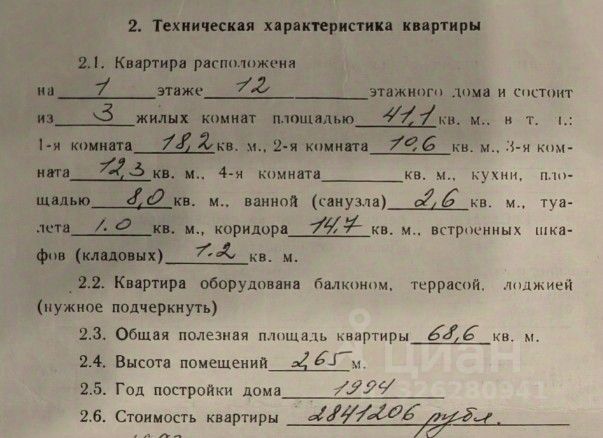 2. Техническая характеристика квартиры
2.1. Квартира расположена
на 1 этаже 12 этажного дома и состоит
из 3 жилых комнат площадью 41,1 кв. м., в т. ч.:
1-я комната 18,2 кв. м., 2-я комната 10,6 кв. м., 3-я ком-
ната 12,3 кв. м., 4-я комната кв. м., кухни, пло-
щадью 8,0 кв. м., ванной (санузла) 2,6 кв. м., туа-
лета 1.0 кв. м., коридора 14,7 кв. м., встроенных шка-
фов (кладовых) 1.2 кв. м.
2.2. Квартира оборудована балконом, террасой, лоджией
(нужное подчеркнуть)
2.3. Общая полезная площадь квартиры 68,6 кв. м.
2.4. Высота помещений 2,65 м.
циан
2.5. Год постройки дома 1994
326280941
2.6. Стоимость квартиры 2841206 рубл.